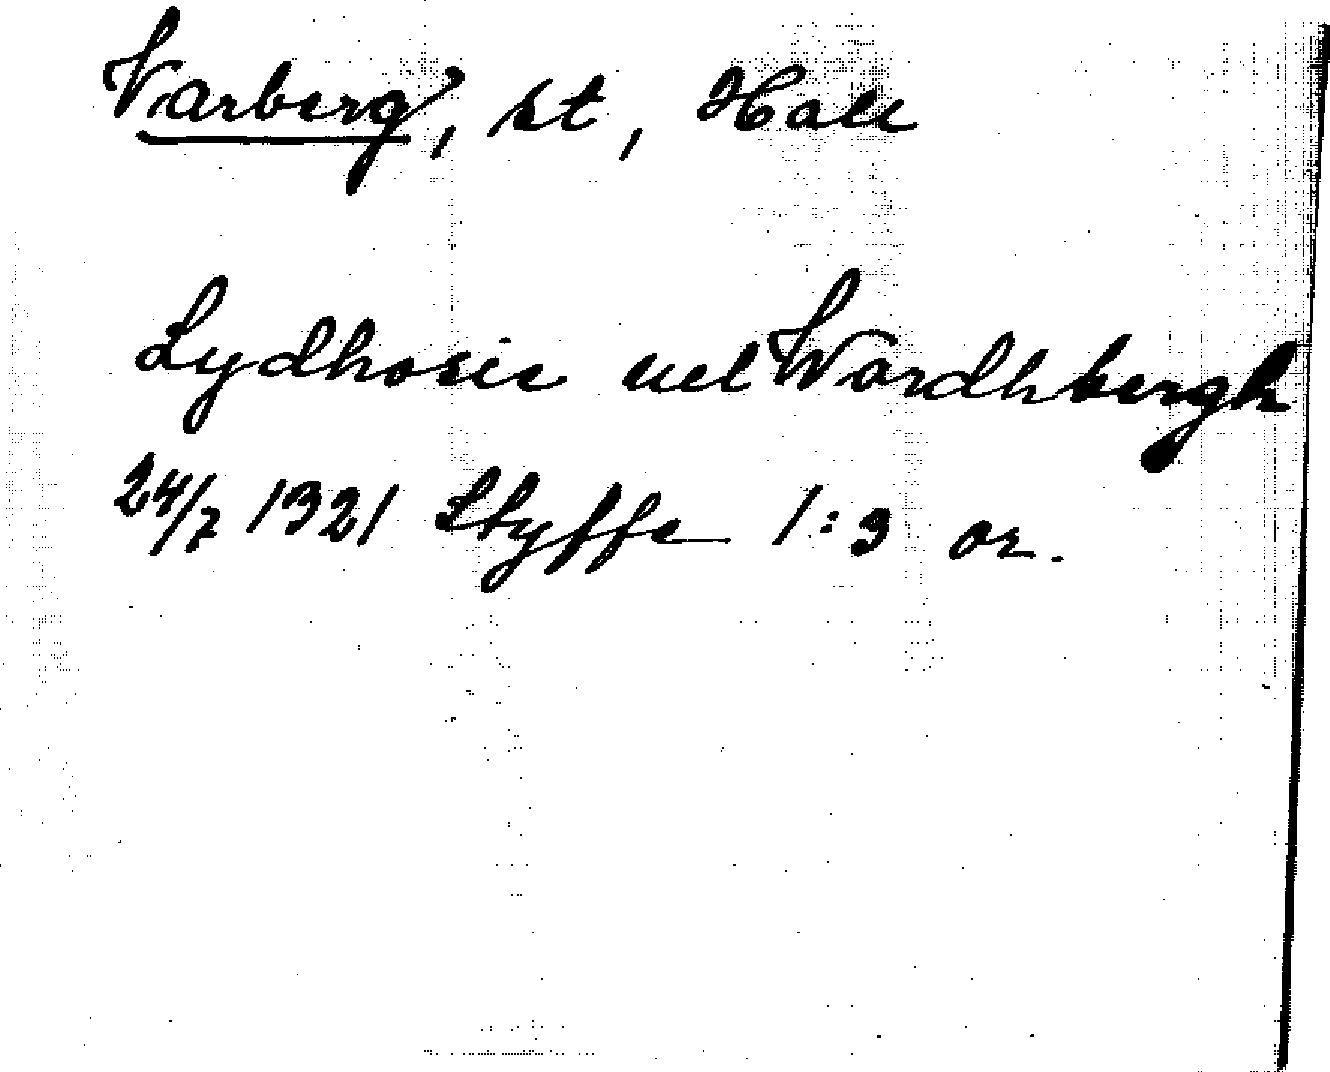 Varberg, st, Hall
Lydhosie uel Wardhbergh
24/7 1321 Styffe 1:3 or.